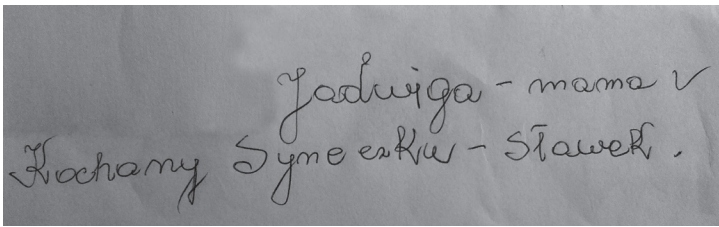 Jadwiga - mama v
Kochany Syneczku - Sławek.